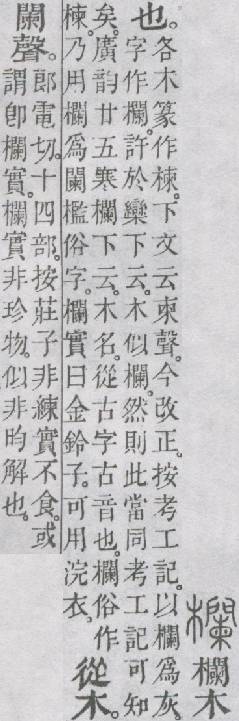 欄欄木
也。
各木篆作楝。下文云柬聲。今改正。按考工記。以欄爲灰
字作欄。許於欒下云。木似欄。然則此當同考工記可知
矣。廣韵廿五寒欄下云。木名。從古字古音也。欄俗作
楝。乃用欄爲闌檻俗字。欄實曰金鈴子。可用浣衣。
從木。
闌聲。
郎電切。十四部。按莊子非練實不食。或
謂卽欄實。欄實非珍物。似非旳解也。